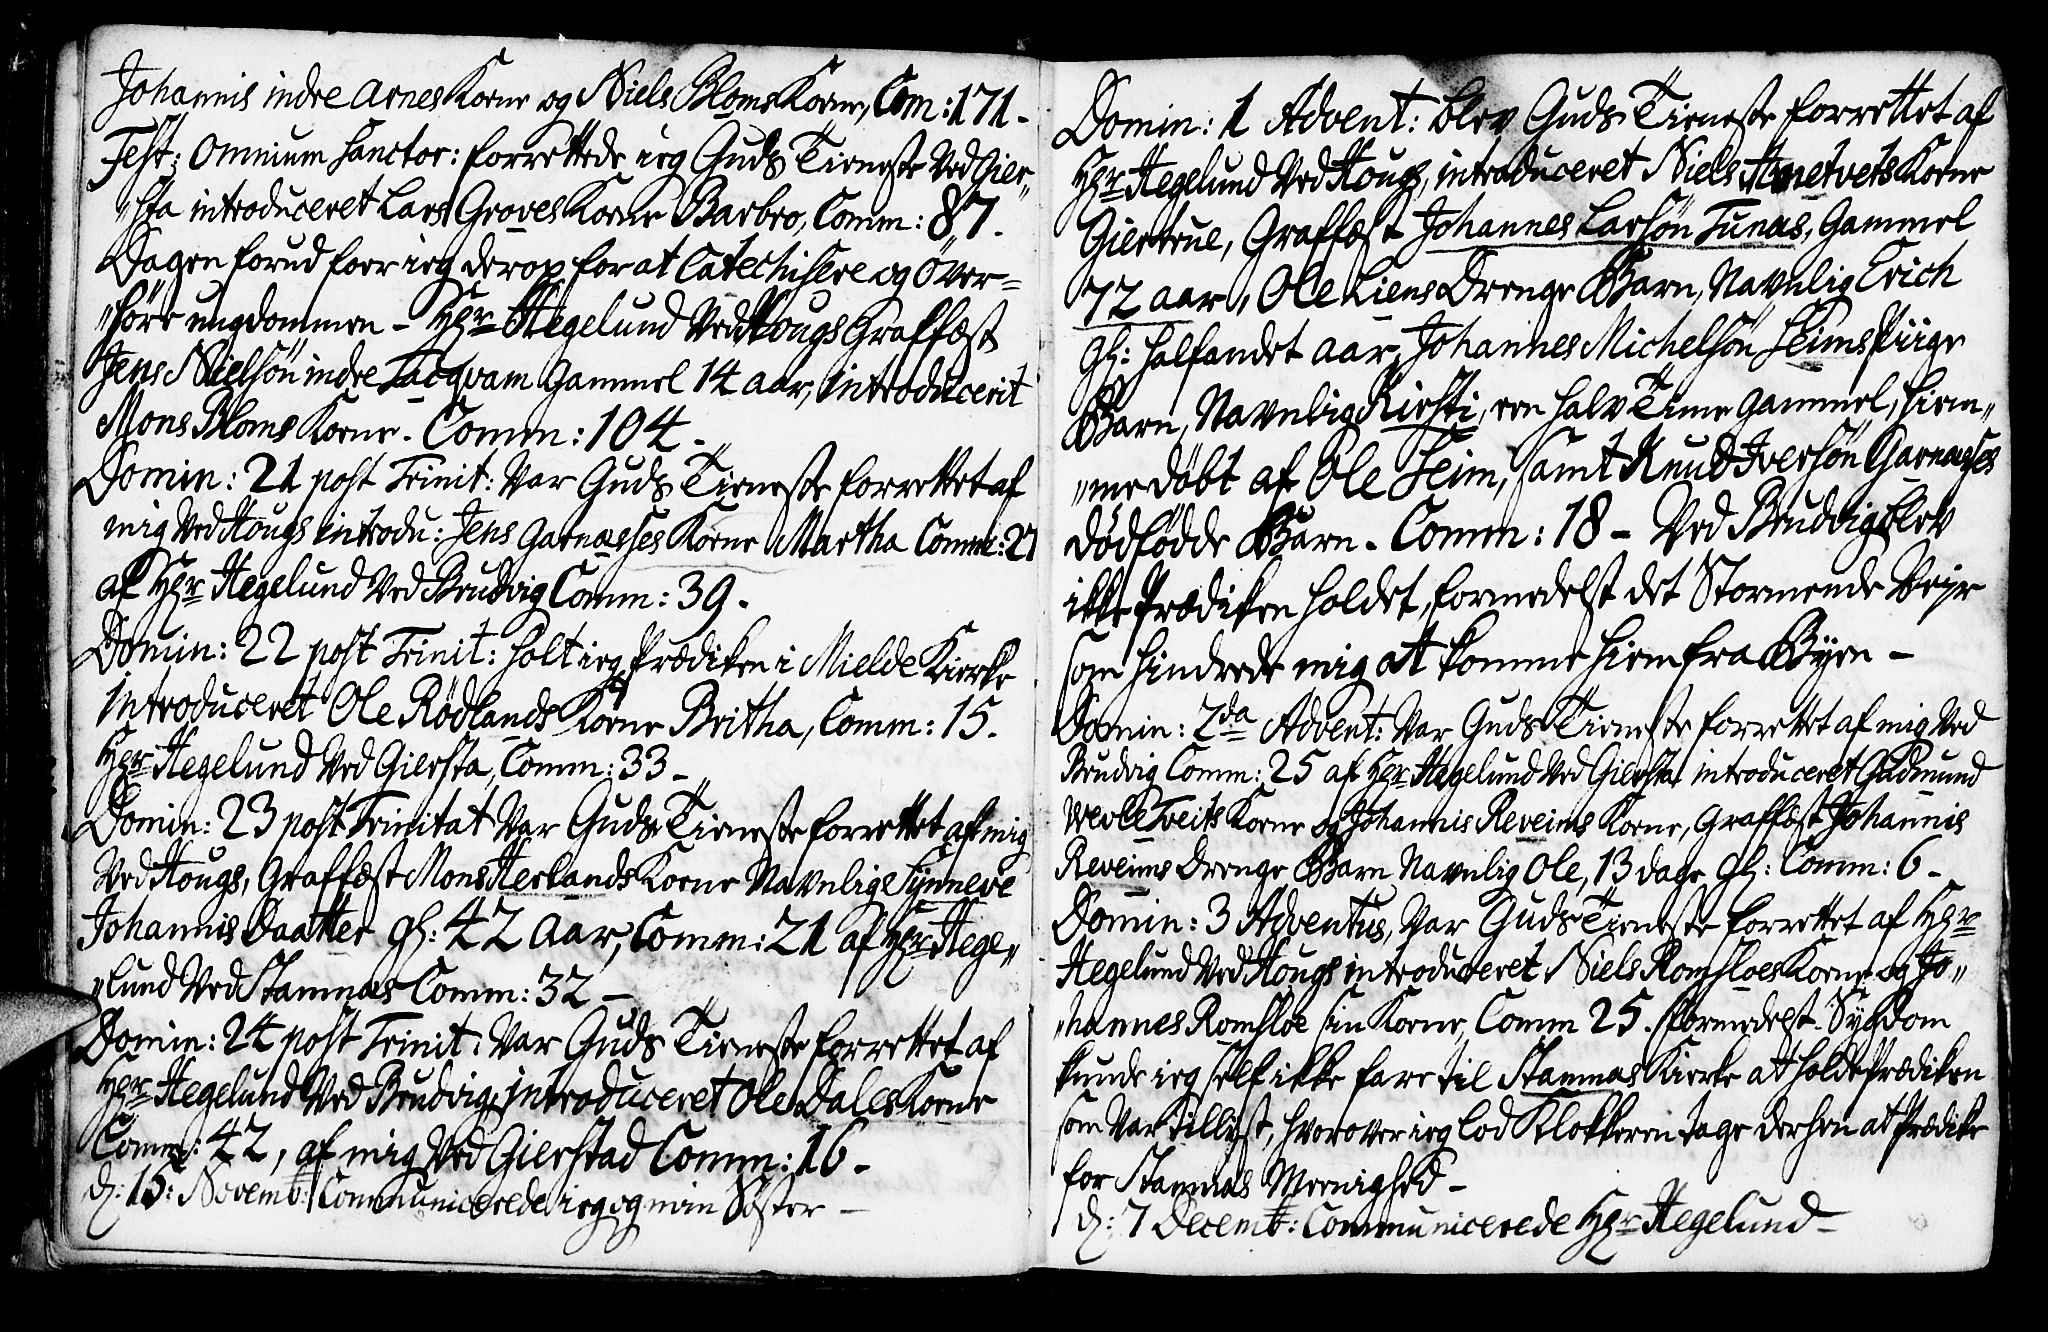 Johannis indre Arnes Kone og Niels Bloms Kone, Com: 171 -
Fest: Omnium Sanctor: forrettede ieg Guds Tieneste Ved Gier„
„sta introduceret Lars Groves Kone Barbro, Comm: 87.
Dagen forud foer ieg derop for at Catechisere og Över=
„höre ungdommen - Hr Hegelund Ved Hougs Graffæst
Jens Nielsön indre Tacqvam gammel 14 aar, introducerit
Mons Bloms Kone. Comm: 104 -
Domin: 21 post Trinit: Var Guds Tieneste forrettet af
mig Ved Hougs introdu: Jens Garnæsses Kone Martha Comm: 27
af Hr Hegelund Ved Brudvig Comm: 39.
Domin: 22 post Trinit: holt ieg Prædiken i Mielde Kierke
introduceret Ole Rödlands Kone Britha, Comm: 15.
Hr Hegelund Ved Giersta, Comm: 33 -
Domin: 23 post Trinitat Var Guds Tieneste forrettet af mig
Ved Hougs, Graffæst Mons Herlands Kone Navnlige Synneve
Johannis Daatter gl: 42 Aar, Comm: 21 af Hr Hege„
„lund Ved Stamnæs Comm: 32 -
Domin: 24 post Trinit: Var Guds Tieneste forrettet af
Hr Hegelund Ved Brudvig, introduceret Ole Dales Kone
Comm: 42, af mig Ved Gierstad Comm: 16 -
d: 15: Novemb: Communicerede ieg og min Söster -
Domin: 1 Advent: blev Guds Tieneste forrettet af
Hr Hegelund Ved Hougs, introduceret Niels Kone
Giertrue, Graffæst Johannes Larsön Tunæs, Gammel
72 aar, Ole Liens Drenge Barn, Navnlig Erich
gl: halfandet aar, Johannes Michelsön Seims Piige
Barn, Navnlig Kirsti, een halv Time gammel, hiem„
„me döbt af Ole Seim, samt Knud Iversön Garnæsses
dödfödde Barn. Comm: 18 - Ved Brudvig blev
ikke Prædiken holdet, formedelst det Stormende Vejr
som hindrede mig at komme hiem fra Byen -
Domin: 2da Advent: Var Guds Tieneste forrettet af mig Ved
Brudvig Comm: 25 af Hr Hegelund Ved Giersta introduceret Gudmund
Kone og Johannis Reveims Kone, Graffæst Johannis
Reveims Drenge Barn Navnlig Ole, 13 dage gl: Comm: 6 -
Domin: 3 Adventus, Var Guds Tieneste forrettet af Hr
Hegelund Ved Hougs introduceret Niels Romsloes Kone og Jo„
„hannes Romsloe sin Kone, Comm 25. formedelst Sygdom
kunde ieg self ikke fare til Stamnæs Kierke at holde Prædiken
som Var tillyst, hvorover ieg lod Klokkeren tage derhen at Prædike
for Stamnæs Meenighed -
d: 7 Decemb: Communicerede Hr Hegelund -